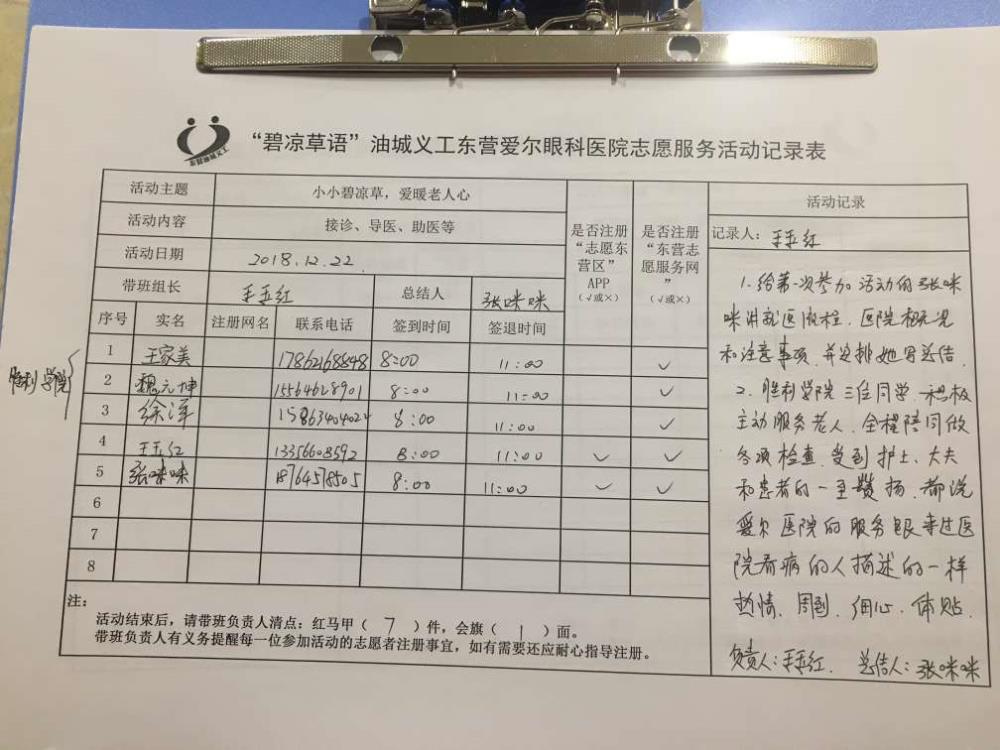 东营油城义工
“碧凉草语”油城义工东营爱尔眼科医院志愿服务活动记录表
活动主题 小小碧凉草，爱暖老人心
活动内容 接诊、导医、助医等
活动日期 2018.12.22
带班组长 王玉红 总结人 张咪咪
是否注册“志愿东营区”APP（√或×）
是否注册“东营志愿服务网”（√或×）
序号 实名 注册网名 联系电话 签到时间 签退时间
胜利学院
1 王家美 17862168848 8:00 11:00 ✓
2 魏元坤 15564628901 8:00 11:00 ✓
3 徐洋 15863404024 8:00 11:00 ✓
4 王玉红 13356608592 8:00 11:00 ✓ ✓
5 张咪咪 18764578505 8:00 11:00 ✓ ✓
6
7
8
注：
活动结束后，请带班负责人清点：红马甲（ 7 ）件，会旗（ 1 ）面。
带班负责人有义务提醒每一位参加活动的志愿者注册事宜，如有需要还应耐心指导注册。
活动记录
记录人：王玉红
1.给第一次参加活动的张咪
咪讲就医流程．医院概况
和注意事项．并安排她写总结．
2．胜利学院三位同学．积极
主动服务老人．全程陪同做
各项检查．受到护士、大夫
和患者的一至赞扬．都说
爱尔医院的服务跟来过医
院看病的人描述的一样
热情．周到．细心．体贴．
负责人：王玉红． 总结人：张咪咪